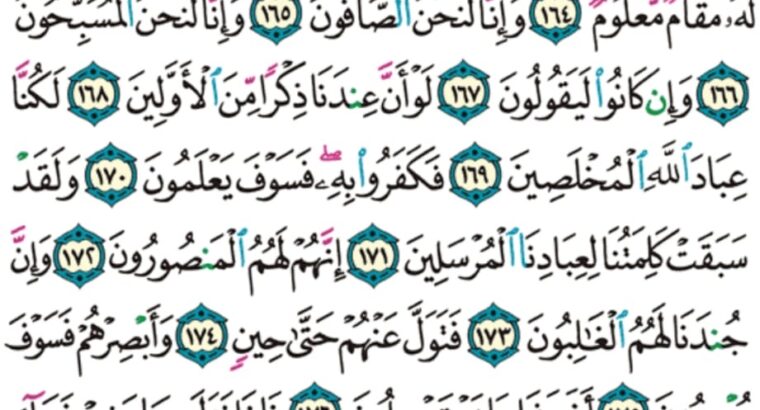 لَهُۥ مَقَامٌ مَّعْلُومٌ ١٦٤ وَإِنَّا لَنَحْنُ ٱلصَّآفُّونَ ١٦٥ وَإِنَّا لَنَحْنُ ٱلْمُسَبِّحُونَ
١٦٦ وَإِن كَانُوا۟ لَيَقُولُونَ ١٦٧ لَوْ أَنَّ عِندَنَا ذِكْرًا مِّنَ ٱلْأَوَّلِينَ ١٦٨ لَكُنَّا
عِبَادَ ٱللَّهِ ٱلْمُخْلَصِينَ ١٦٩ فَكَفَرُوا۟ بِهِۦ ۖ فَسَوْفَ يَعْلَمُونَ ١٧٠ وَلَقَدْ
سَبَقَتْ كَلِمَتُنَا لِعِبَادِنَا ٱلْمُرْسَلِينَ ١٧١ إِنَّهُمْ لَهُمُ ٱلْمَنصُورُونَ ١٧٢ وَإِنَّ
جُندَنَا لَهُمُ ٱلْغَـٰلِبُونَ ١٧٣ فَتَوَلَّ عَنْهُمْ حَتَّىٰ حِينٍ ١٧٤ وَأَبْصِرْهُمْ فَسَوْفَ